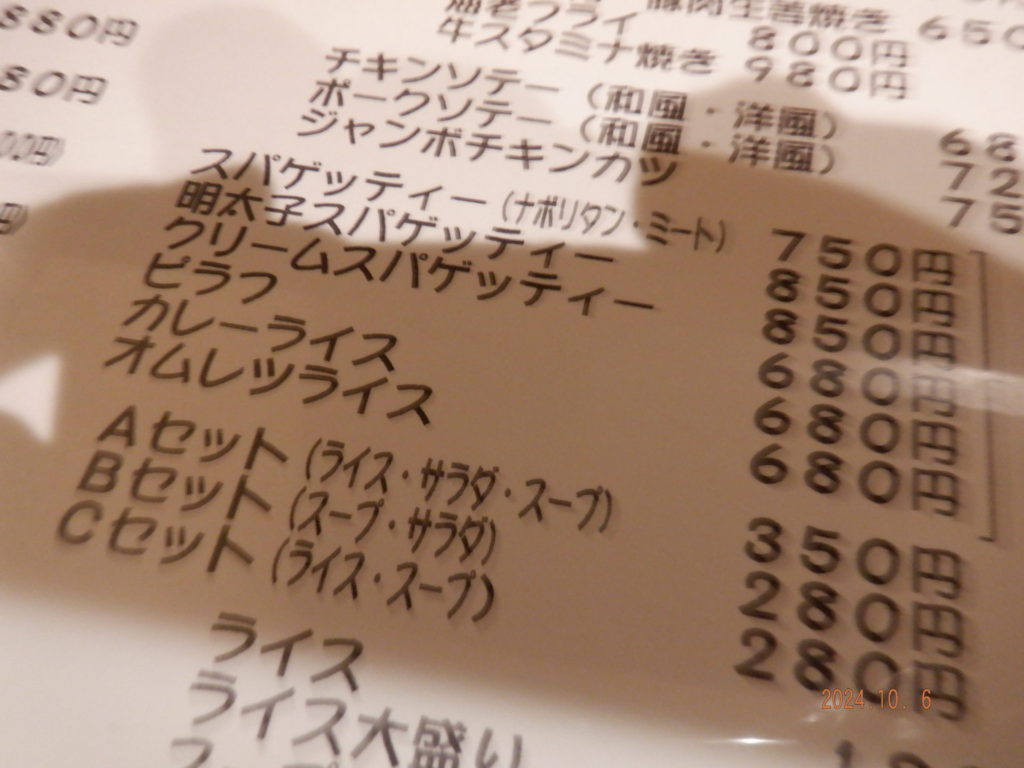 880円
80円
00円)
円)
豚肉生姜焼き 650
海老フライ 800円
牛スタミナ焼き 980円
チキンソテー (和風・洋風) 68
ポークソテー (和風・洋風) 72
ジャンボチキンカツ 75
スパゲッティー (ナポリタン・ミート) 750円
明太子スパゲッティー 850円
クリームスパゲッティー 850円
ピラフ 680円
カレーライス 680円
オムレツライス 680円
Aセット (ライス・サラダ・スープ) 350円
Bセット (スープ・サラダ) 280円
Cセット (ライス・スープ) 280円
ライス
ライス大盛り
2024.10. 6